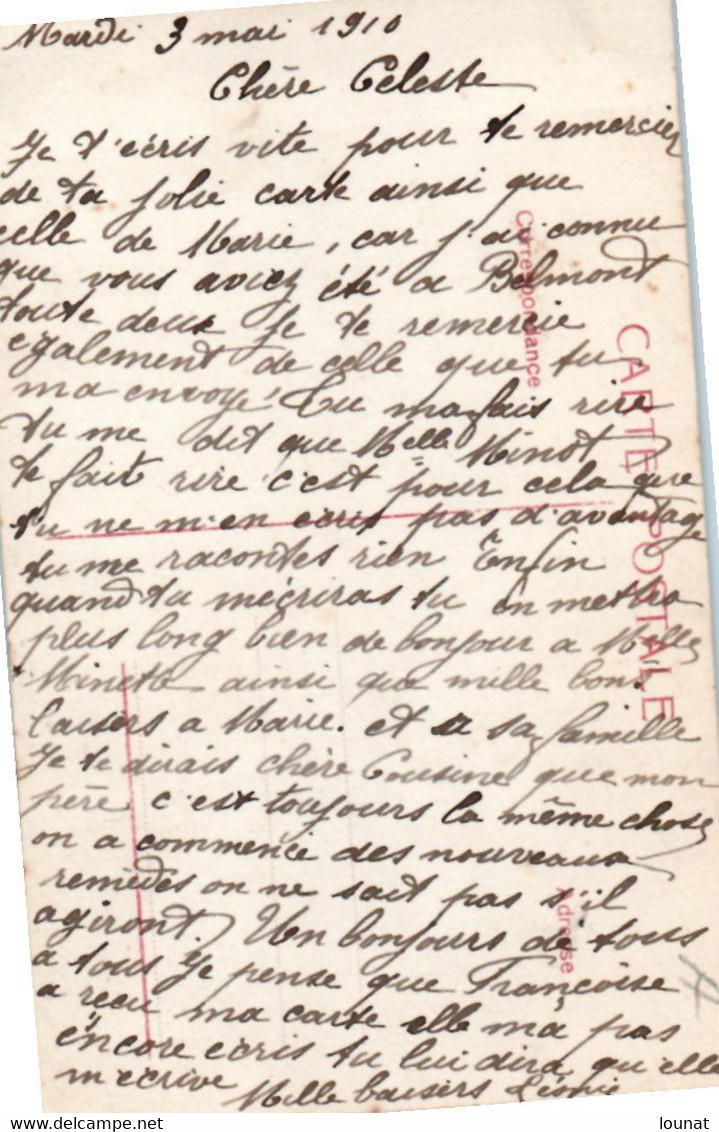 Mardi 3 mai 1910
Chère Céleste
Je t'écris vite pour te remercier
de ta jolie carte ainsi que
celle de Marie, car j'ai connu
que vous aviez été a Belmont
toute deux je te remercie
également de celle que tu
ma envoyé Tu ma fais rire
tu me dit que Melle Minot
te fait rire c'est pour cela que
tu ne m'en écris pas d'avantage
tu me racontes rien Enfin
quand tu mécriras tu en mettra
plus long bien de bonjour a Melle
Minette ainsi que mille bons
baisers a Marie. et a sa famille
Je te dirais chère Cousine que mon
père c'est toujours la même chose
on a commencé des nouveaux
remèdes on ne sait pas s'il
agiront Un bonjours de tous
a tous Je pense que Françoise
a reçu ma carte elle m'a pas
encore écris tu lui dira qu'elle
m'écrive
Mille baisers Léonie
CARTE POSTALE
Correspondance
Adresse
Delcampe.net
lounat